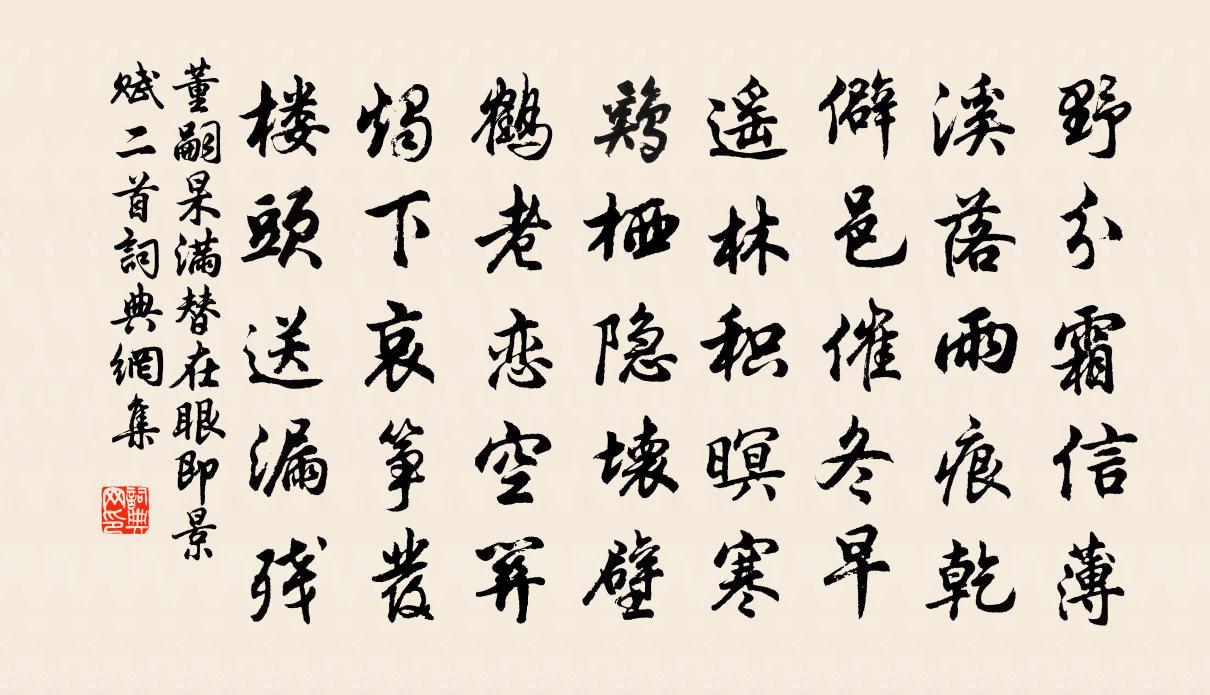 野分霜信薄
溪落雨痕乾
僻邑催冬早
遥林积暝寒
鶏栖隐壊壁
鶴老恋空
燭下哀筝發
楼頭送漏残
董嗣杲满替在眼即景
赋二首詞典網集
詞典
网印